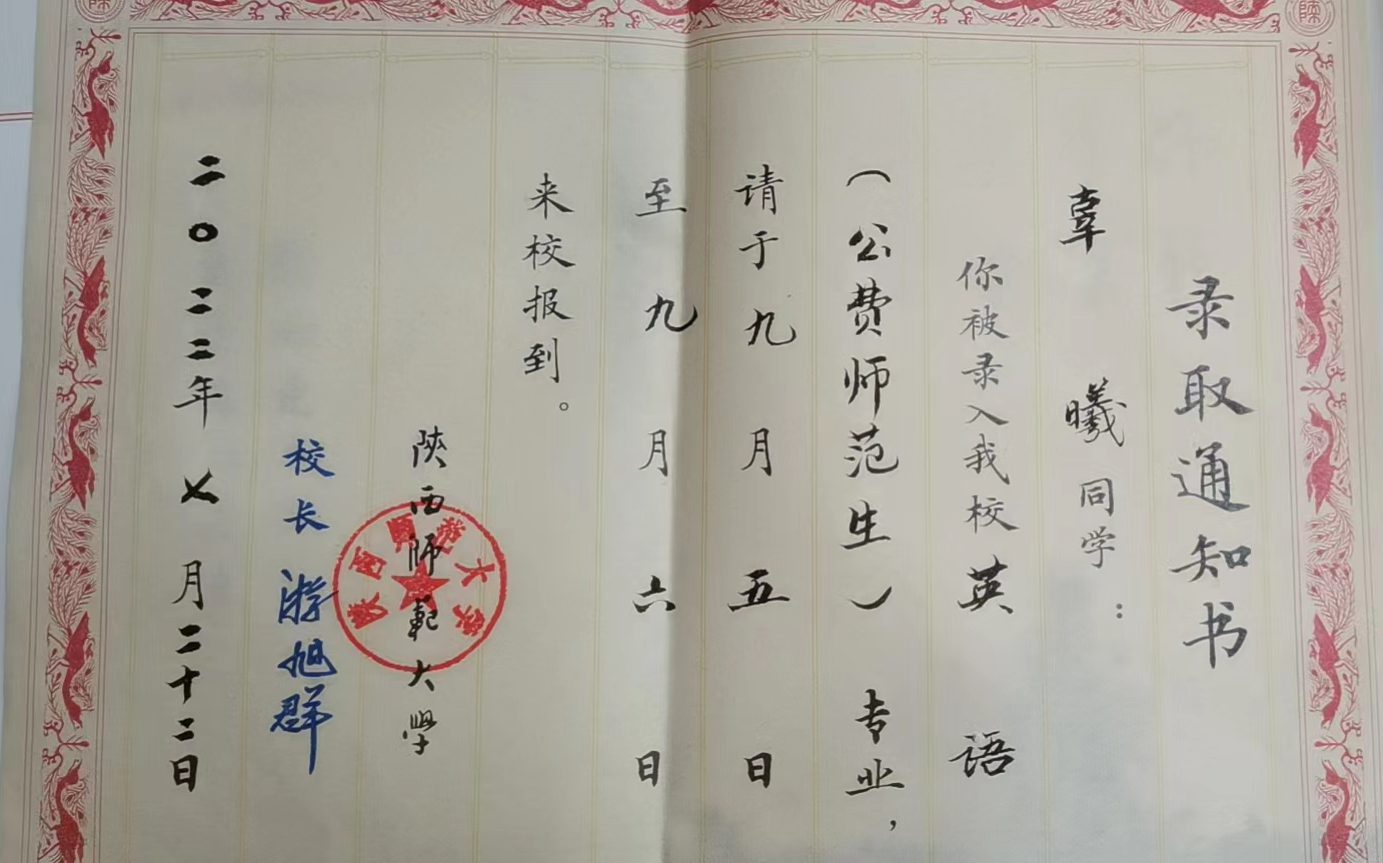 录取通知书
辜曦同学：
你被录入我校英语
（公费师范生）专业，
请于九月五日
至九月六日
来校报到。
陕西师範大学
校长 游旭群
二〇二二年七月二十二日
陕西师范大学